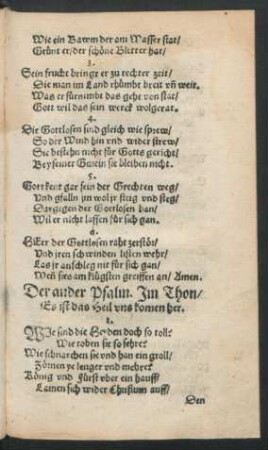 Wie ein Bawm der am Wasser stat/
Grünt er/der schöne Bletter hat/
3.
Sein frucht bringt er zu rechter zeit/
Die man im Land rhůmbt breit vñ weit.
Was er fürnimbt das geht von stat/
Gott wil das sein werck wolgerat.
4.
Die Gottlosen sind gleich wie sprew/
So der Wind hin vnd wider strew/
Sie bestehn nicht für Gotts gericht/
Bey seiner Gmein sie bleiben nicht.
5.
Gott kent gar sein der Grechten weg/
Vnd gfalln jm wolyr steig vnd steg/
Dargegen der Gottlosen ban/
Wil er nicht lassen für sich gan.
6.
HErr der Gottlosen raht zerstör/
Vnd jren schwinden listen wehr/
Las jr anschleg nit für sich gan/
Wen sies am klügsten greiffen an/ Amen.
Der ander Psalm. Im Thon/
Es ist das Heil vns komen her.
1.
WIe sind die Heyden doch so toll?
Wie toben sie so sehre?
Wie schnarchen sie vnd han ein groll/
Zörnen ye lenger vnd mehre?
König vnd Fürst vber ein hauff/
Lainen sich wider Christum auff/
Den